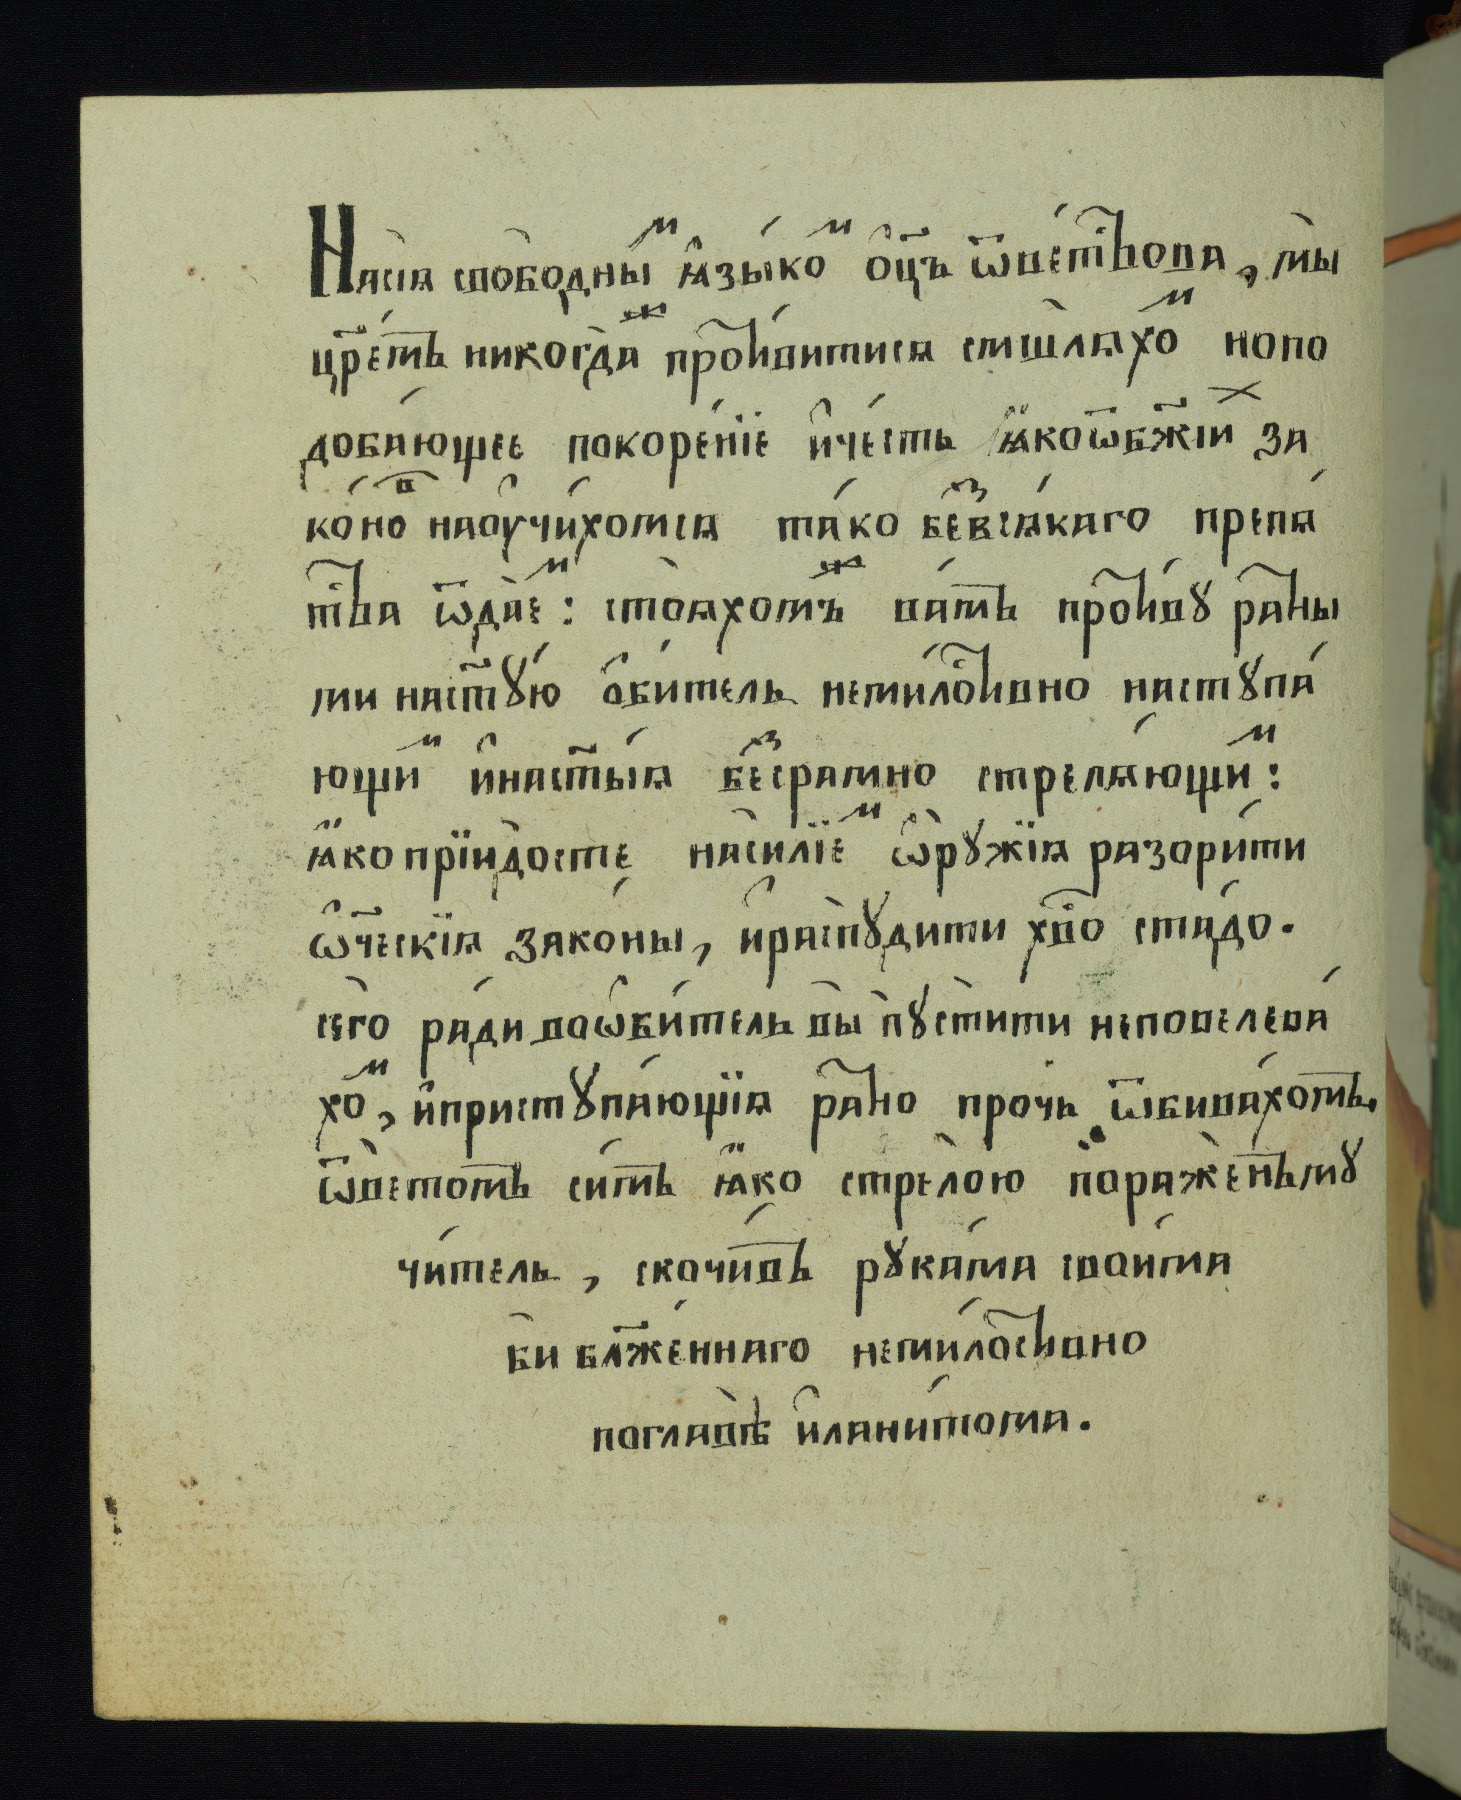 На сїѧ свобо́дныⷨ ѧ҆зы́комⷨ о҆ц҃ъ ѿвѣтствова, мы̀
цр҃е́мъ никогда́ⷤ проти́витисѧ смышлѧ́хоⷨ но по
доба́ющее покоре́нїе и҆ че́сть ꙗ҆́ко ѿ бж҃їиⷯ за
ко́ноⷡ наꙋчи́хомсѧ та́ко беⷥ всѧ́каго препѧ́
тства ѿдае́ⷨ: стоѧ́хомъⷤ ва́мъ проти́вꙋ ра́тны
ми на ст҃ꙋ́ю ѻ҆би́тель неми́лостивно настꙋпа́
ющиⷨ и҆ на ст҃ы́ѧ беⷥсра́мно стрелѧ́ющиⷨ:
ꙗ҆́ко прїидо́сте наси́лїеⷨ ѡ҆рꙋ́жїѧ разори́ти
ѻ҆те́ческїѧ зако́ны, и҆ распꙋ́дити хв҃о ста́до.
сего̀ ра́ди во ѡ҆би́тель вы̀ пꙋсти́ти не повелева́
хоⷨ, и҆ пристꙋпа́ющїѧ ра́тно про́чь ѿбива́хомъ.
ѿве́томъ си́мъ ꙗ҆́ко стрело́ю пораже́нъ мꙋ
чи́тель, скочи́въ рꙋка́ма свои́ма
бѝ бл҃же́ннаго неми́лостивно
по главѣ̀ и҆ лани́тома.